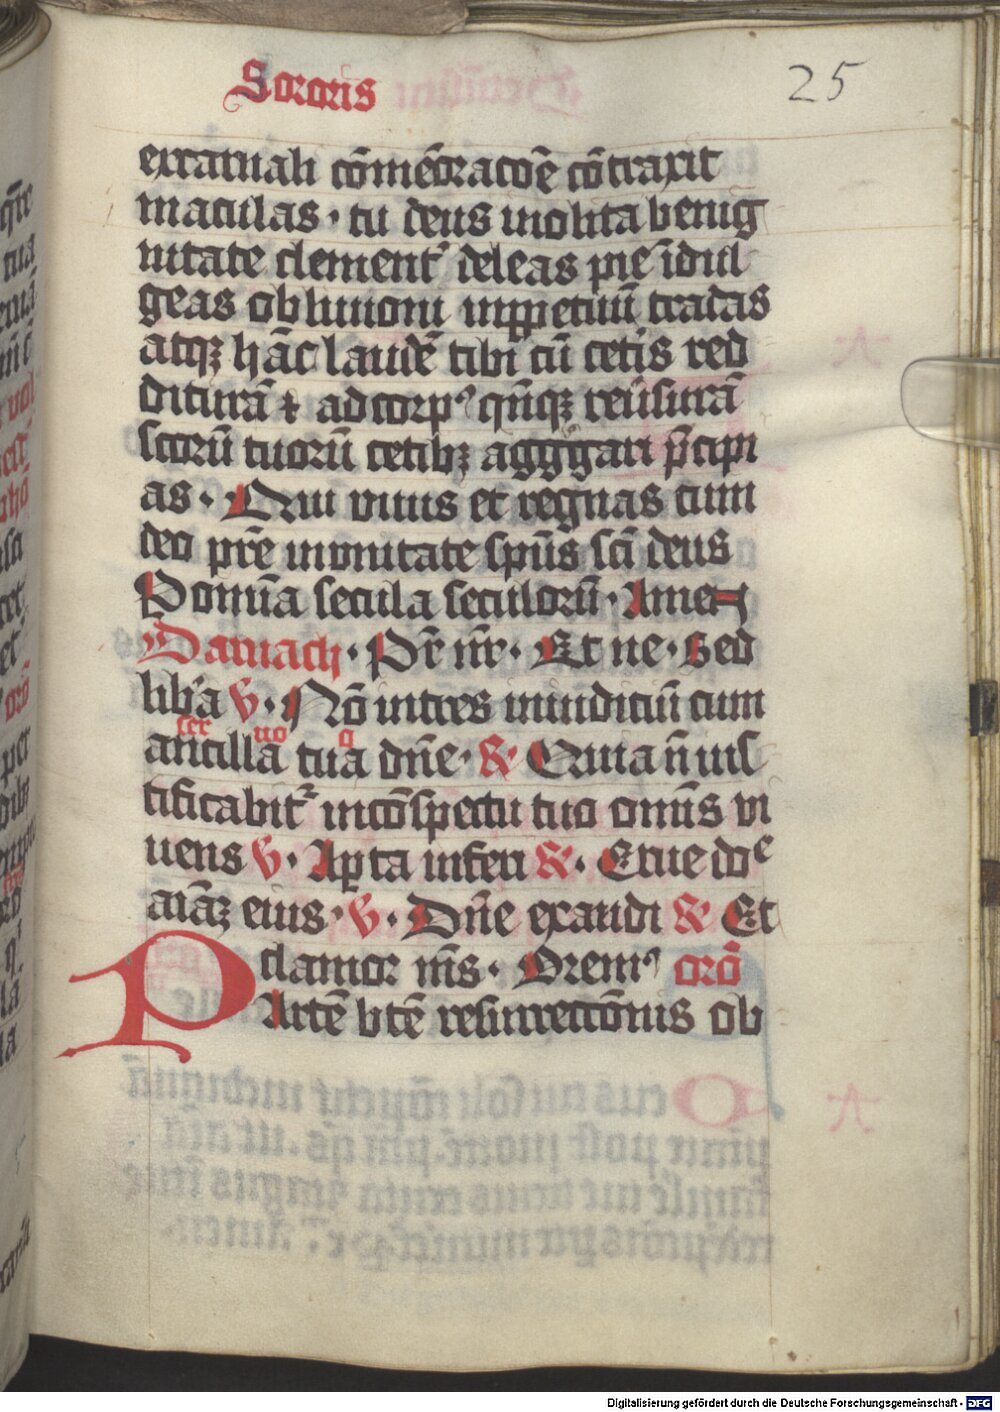 Sororis 25
ex carnali cōmēoracōe cōtraxit
maculas · tu deus inolita benig
nitate clement᷑ deleas pie īdul
geas obliuioni inꝑpetuū tradas
atqꝫ hāc laudē tibi cū cet᷑is red
diturā ⁊ ad corpꝰ qn̄qꝫ reūsurā
sc̄orū tuorū cetibꝫ aggregari p̄cipi
as · Qui viuis et regnas cum
deo pr̄e in vnitate sp̄us sc̄i deus
Per om̄ia secula seculorū · Amen
Darnach · Pr̄ nr̄ · Et ne · Sed
lib᷑a v̄ · Nō intres in iudiciū cum
ser uo o
ancilla tua dn̄e · ℟ Quia n̄ ius
tificabit᷑ in cōspectu tuo omīs vi
uens v̄ · A porta inferi ℟ · Erue dn̄e
aīaꝫ eius · v̄ · Dn̄e exaudi ℟ Et
clamor m̄s · Oremꝰ orō
PArtē btē resurrectōnis ob
Digitalisierung gefördert durch die Deutsche Forschungsgemeinschaft - DFG